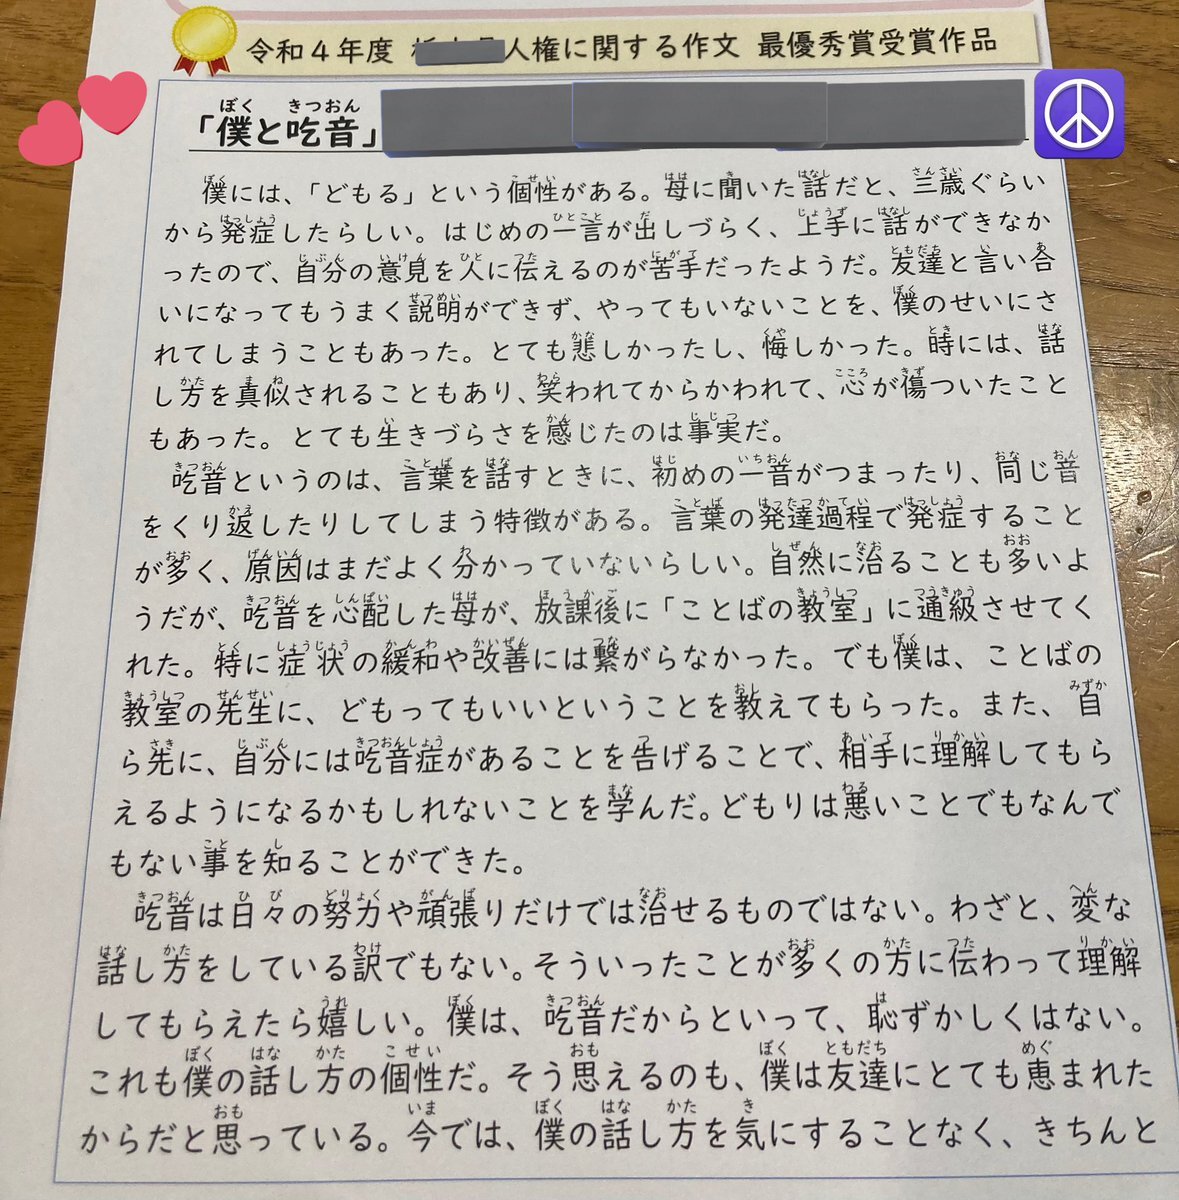 令和４年度 人権に関する作文 最優秀賞受賞作品
「僕と吃音」
僕には、「どもる」という個性がある。母に聞いた話だと、三歳ぐらい
から発症したらしい。はじめの一言が出しづらく、上手に話ができなか
ったので、自分の意見を人に伝えるのが苦手だったようだ。友達と言い合
いになってもうまく説明ができず、やってもいないことを、僕のせいにさ
れてしまうこともあった。とても悲しかったし、悔しかった。時には、話
し方を真似されることもあり、笑われてからかわれて、心が傷ついたこと
もあった。とても生きづらさを感じたのは事実だ。
吃音というのは、言葉を話すときに、初めの一音がつまったり、同じ音
をくり返したりしてしまう特徴がある。言葉の発達過程で発症すること
が多く、原因はまだよく分かっていないらしい。自然に治ることも多いよ
うだが、吃音を心配した母が、放課後に「ことばの教室」に通級させてく
れた。特に症状の緩和や改善には繋がらなかった。でも僕は、ことばの
教室の先生に、どもってもいいということを教えてもらった。また、自
ら先に、自分には吃音症があることを告げることで、相手に理解してもら
えるようになるかもしれないことを学んだ。どもりは悪いことでもなんで
もない事を知ることができた。
吃音は日々の努力や頑張りだけでは治せるものではない。わざと、変な
話し方をしている訳でもない。そういったことが多くの方に伝わって理解
してもらえたら嬉しい。僕は、吃音だからといって、恥ずかしくはない。
これも僕の話し方の個性だ。そう思えるのも、僕は友達にとても恵まれた
からだと思っている。今では、僕の話し方を気にすることなく、きちんと